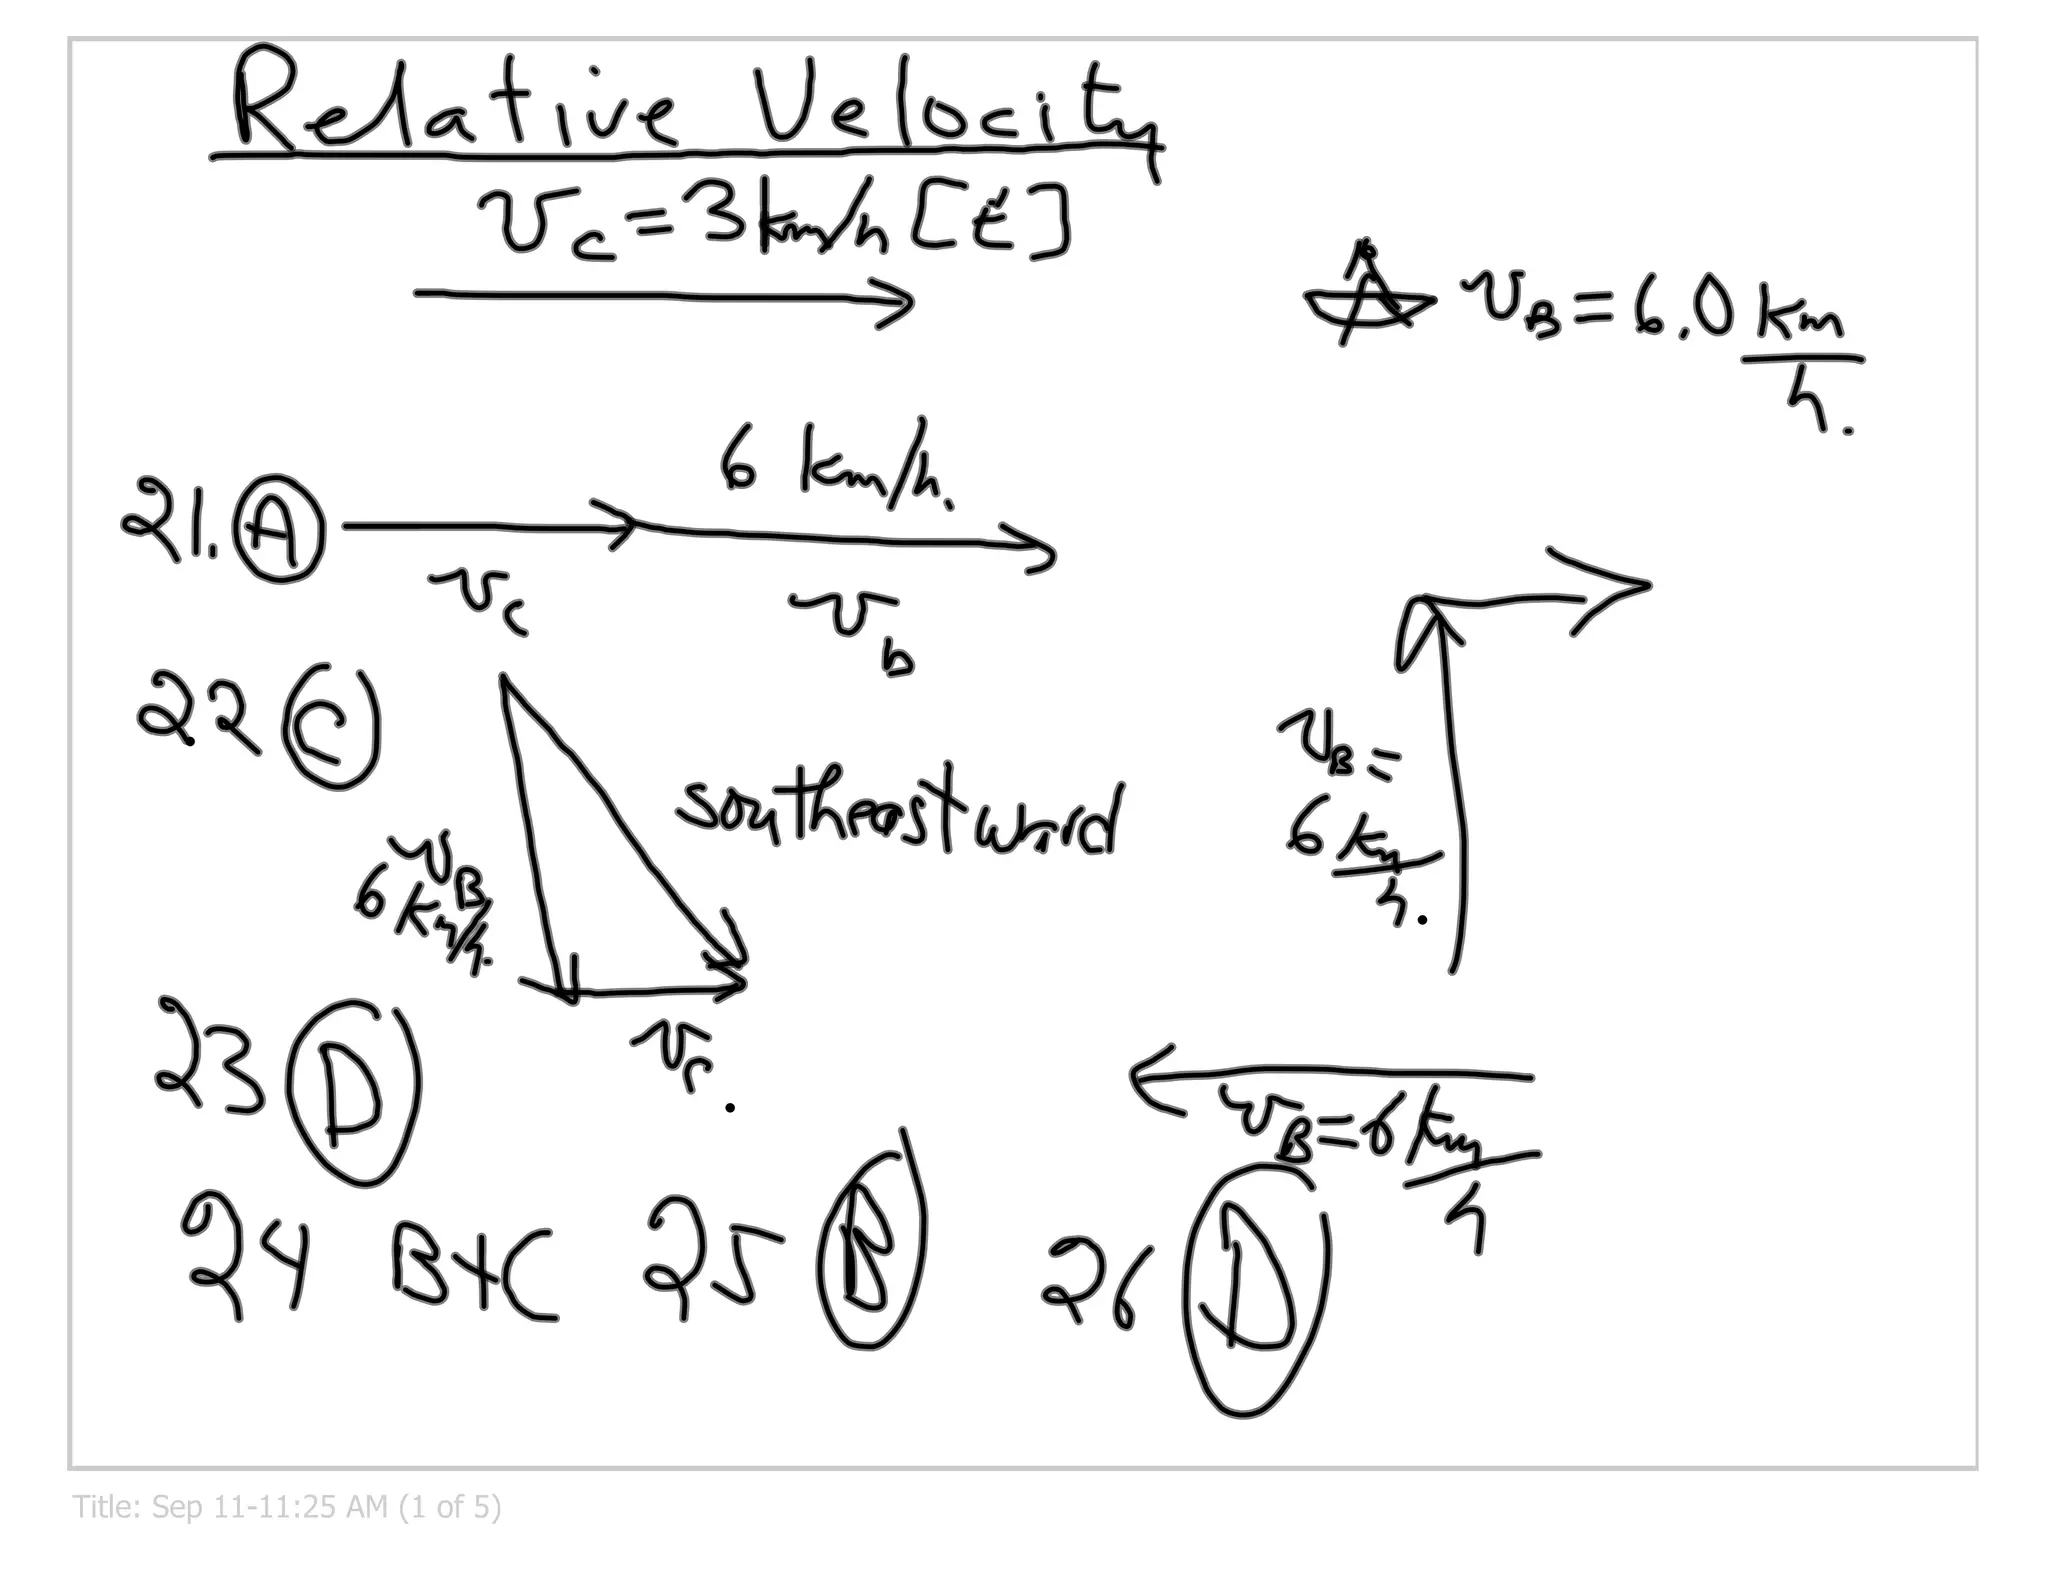 Relative Velocity
v_c = 3 km/h [E]
v_B = 6.0 km/h.
6 km/h.
21. A
v_c
v_b
22 C
southeastward
v_B
6 km/h.
v_B =
6 km/h.
v_c
23 D
v_B = 6 km/h
24 B+C 25 B 26 D
Title: Sep 11-11:25 AM (1 of 5)